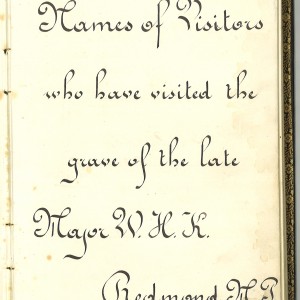 Names of Visitors
who have visited the
grave of the late
Major W. H. K.
Redmond M.P.